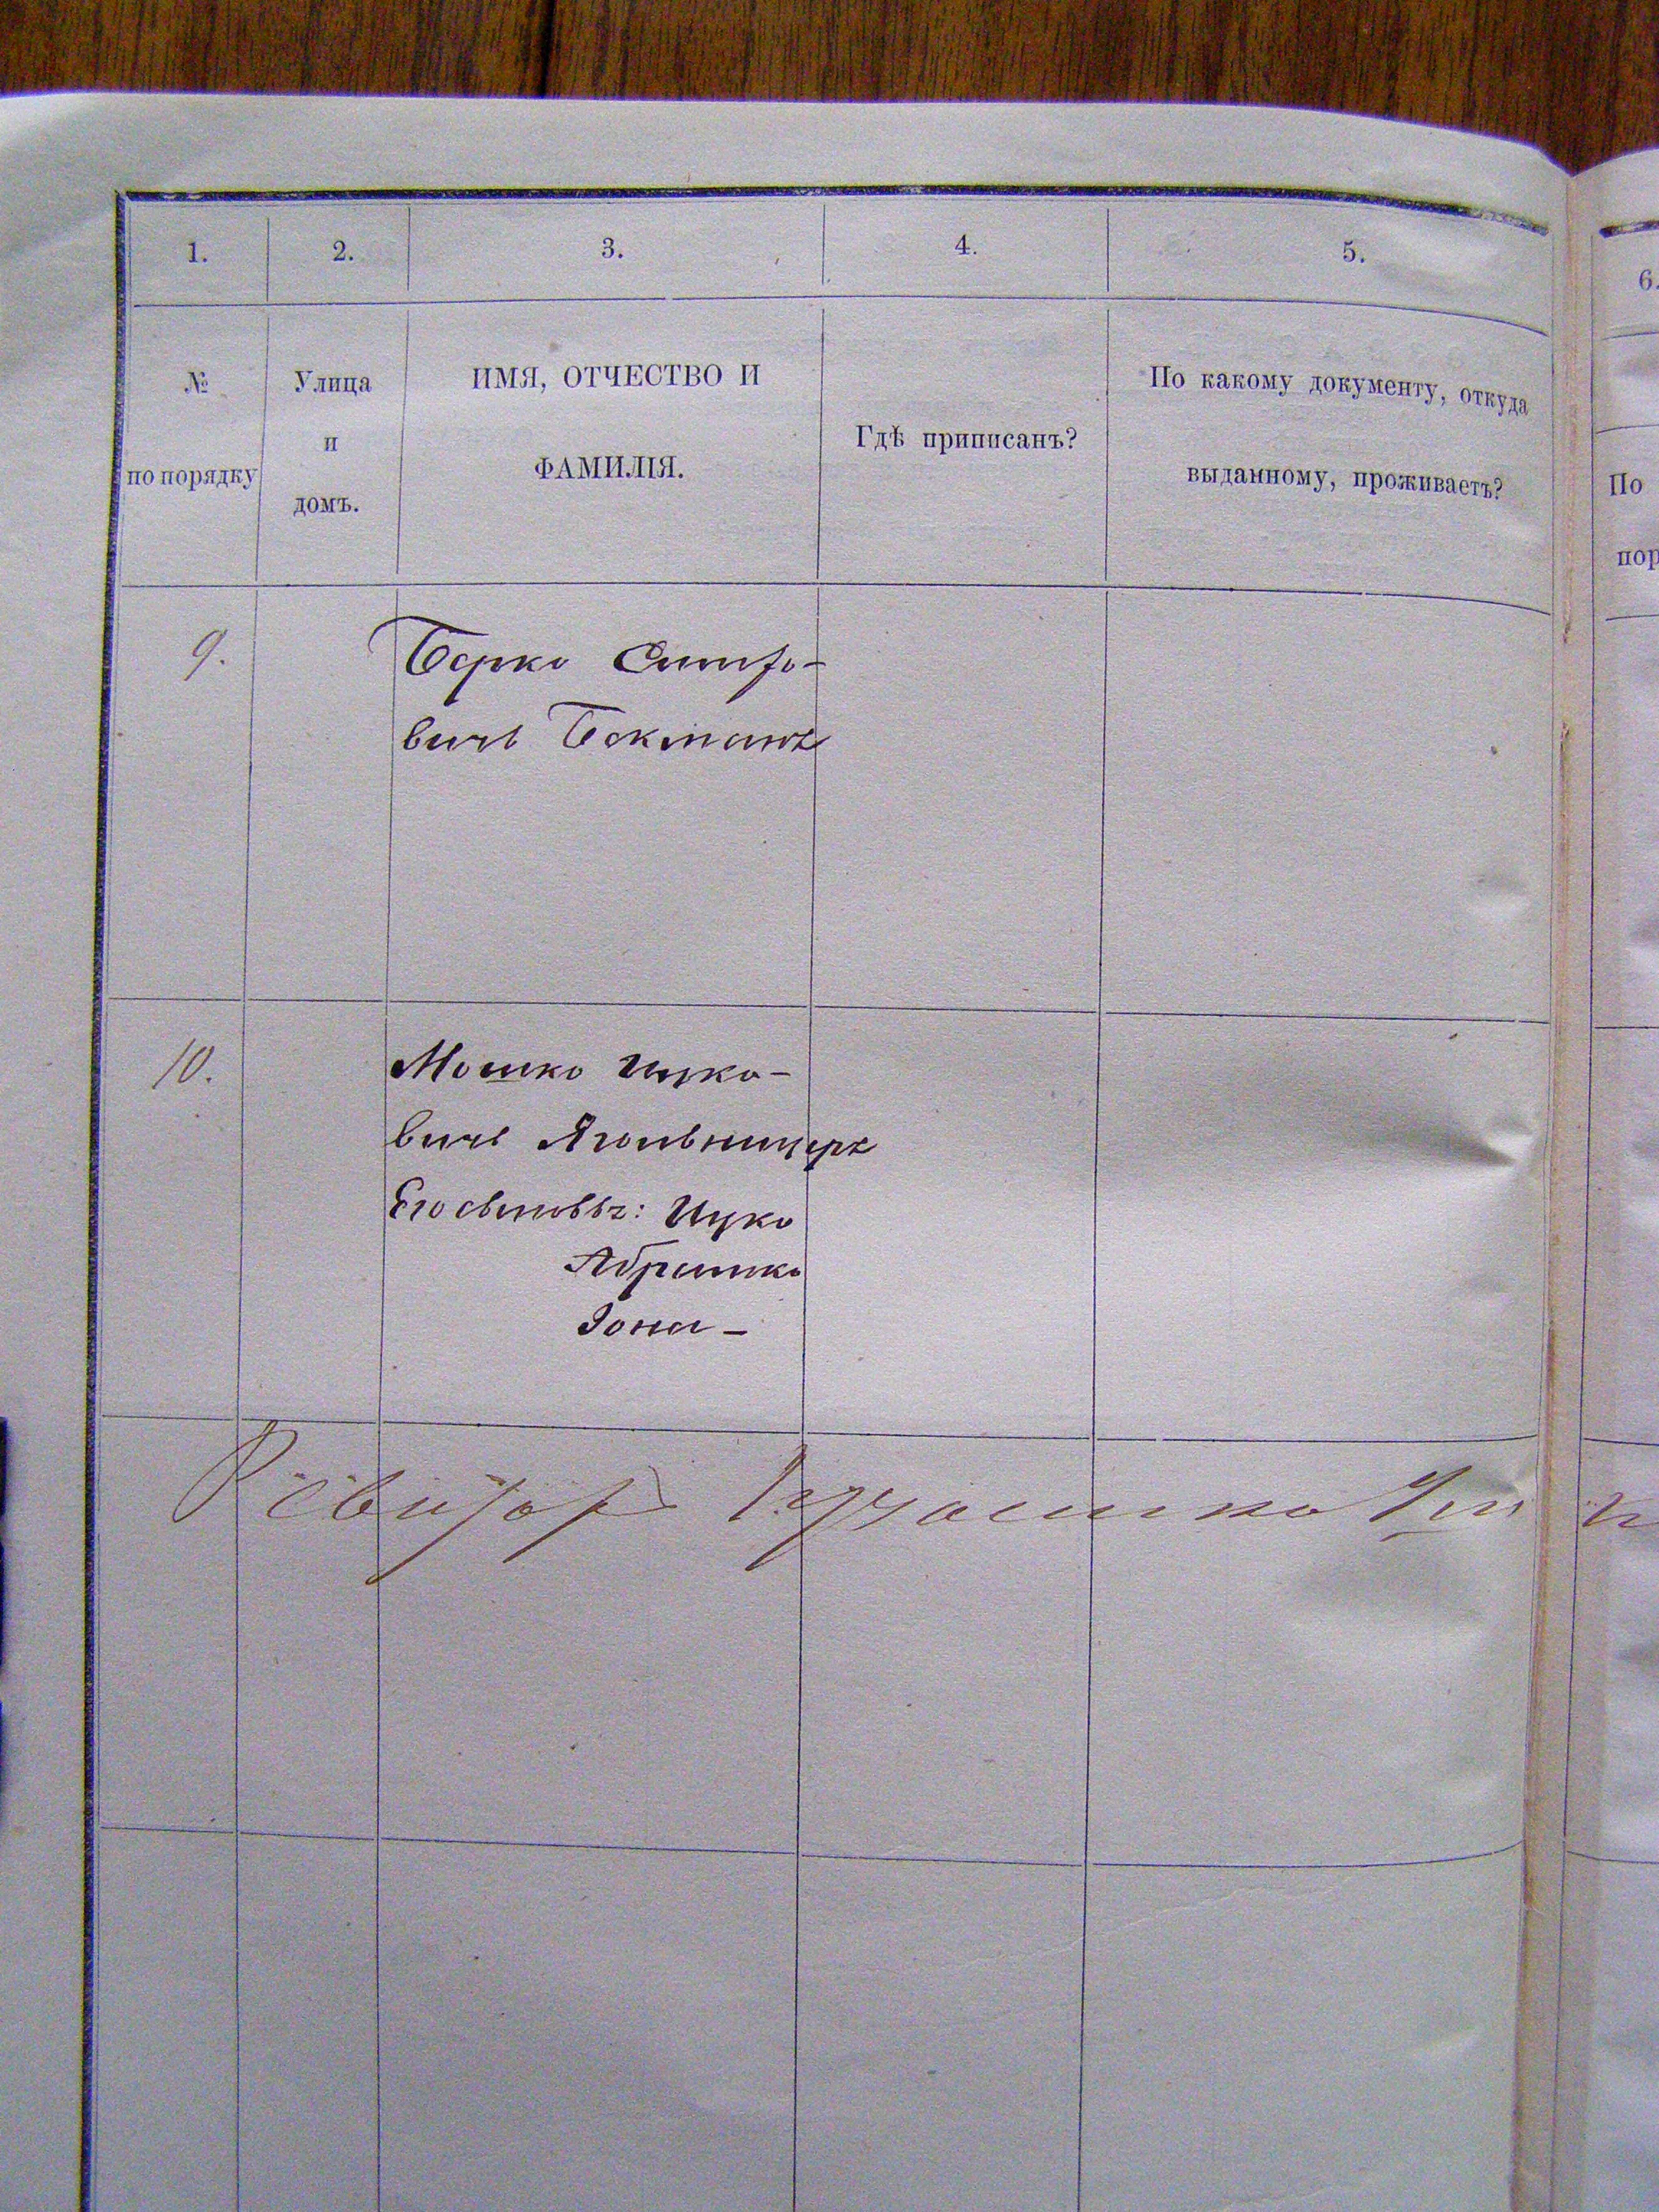 1. 2. 3. 4. 5.
6.
№
по порядку
Улица
и
домъ.
ИМЯ, ОТЧЕСТВО И
ФАМИЛІЯ.
Гдѣ приписанъ?
По какому документу, откуда
выданному, проживаетъ?
По
пор
9.
Берко
вичъ Бекманъ
10.
Мошко Ицко-
вичъ Ягольницеръ
Его сыновья: Ицко
Абрамко
Іона –
Ревизоръ